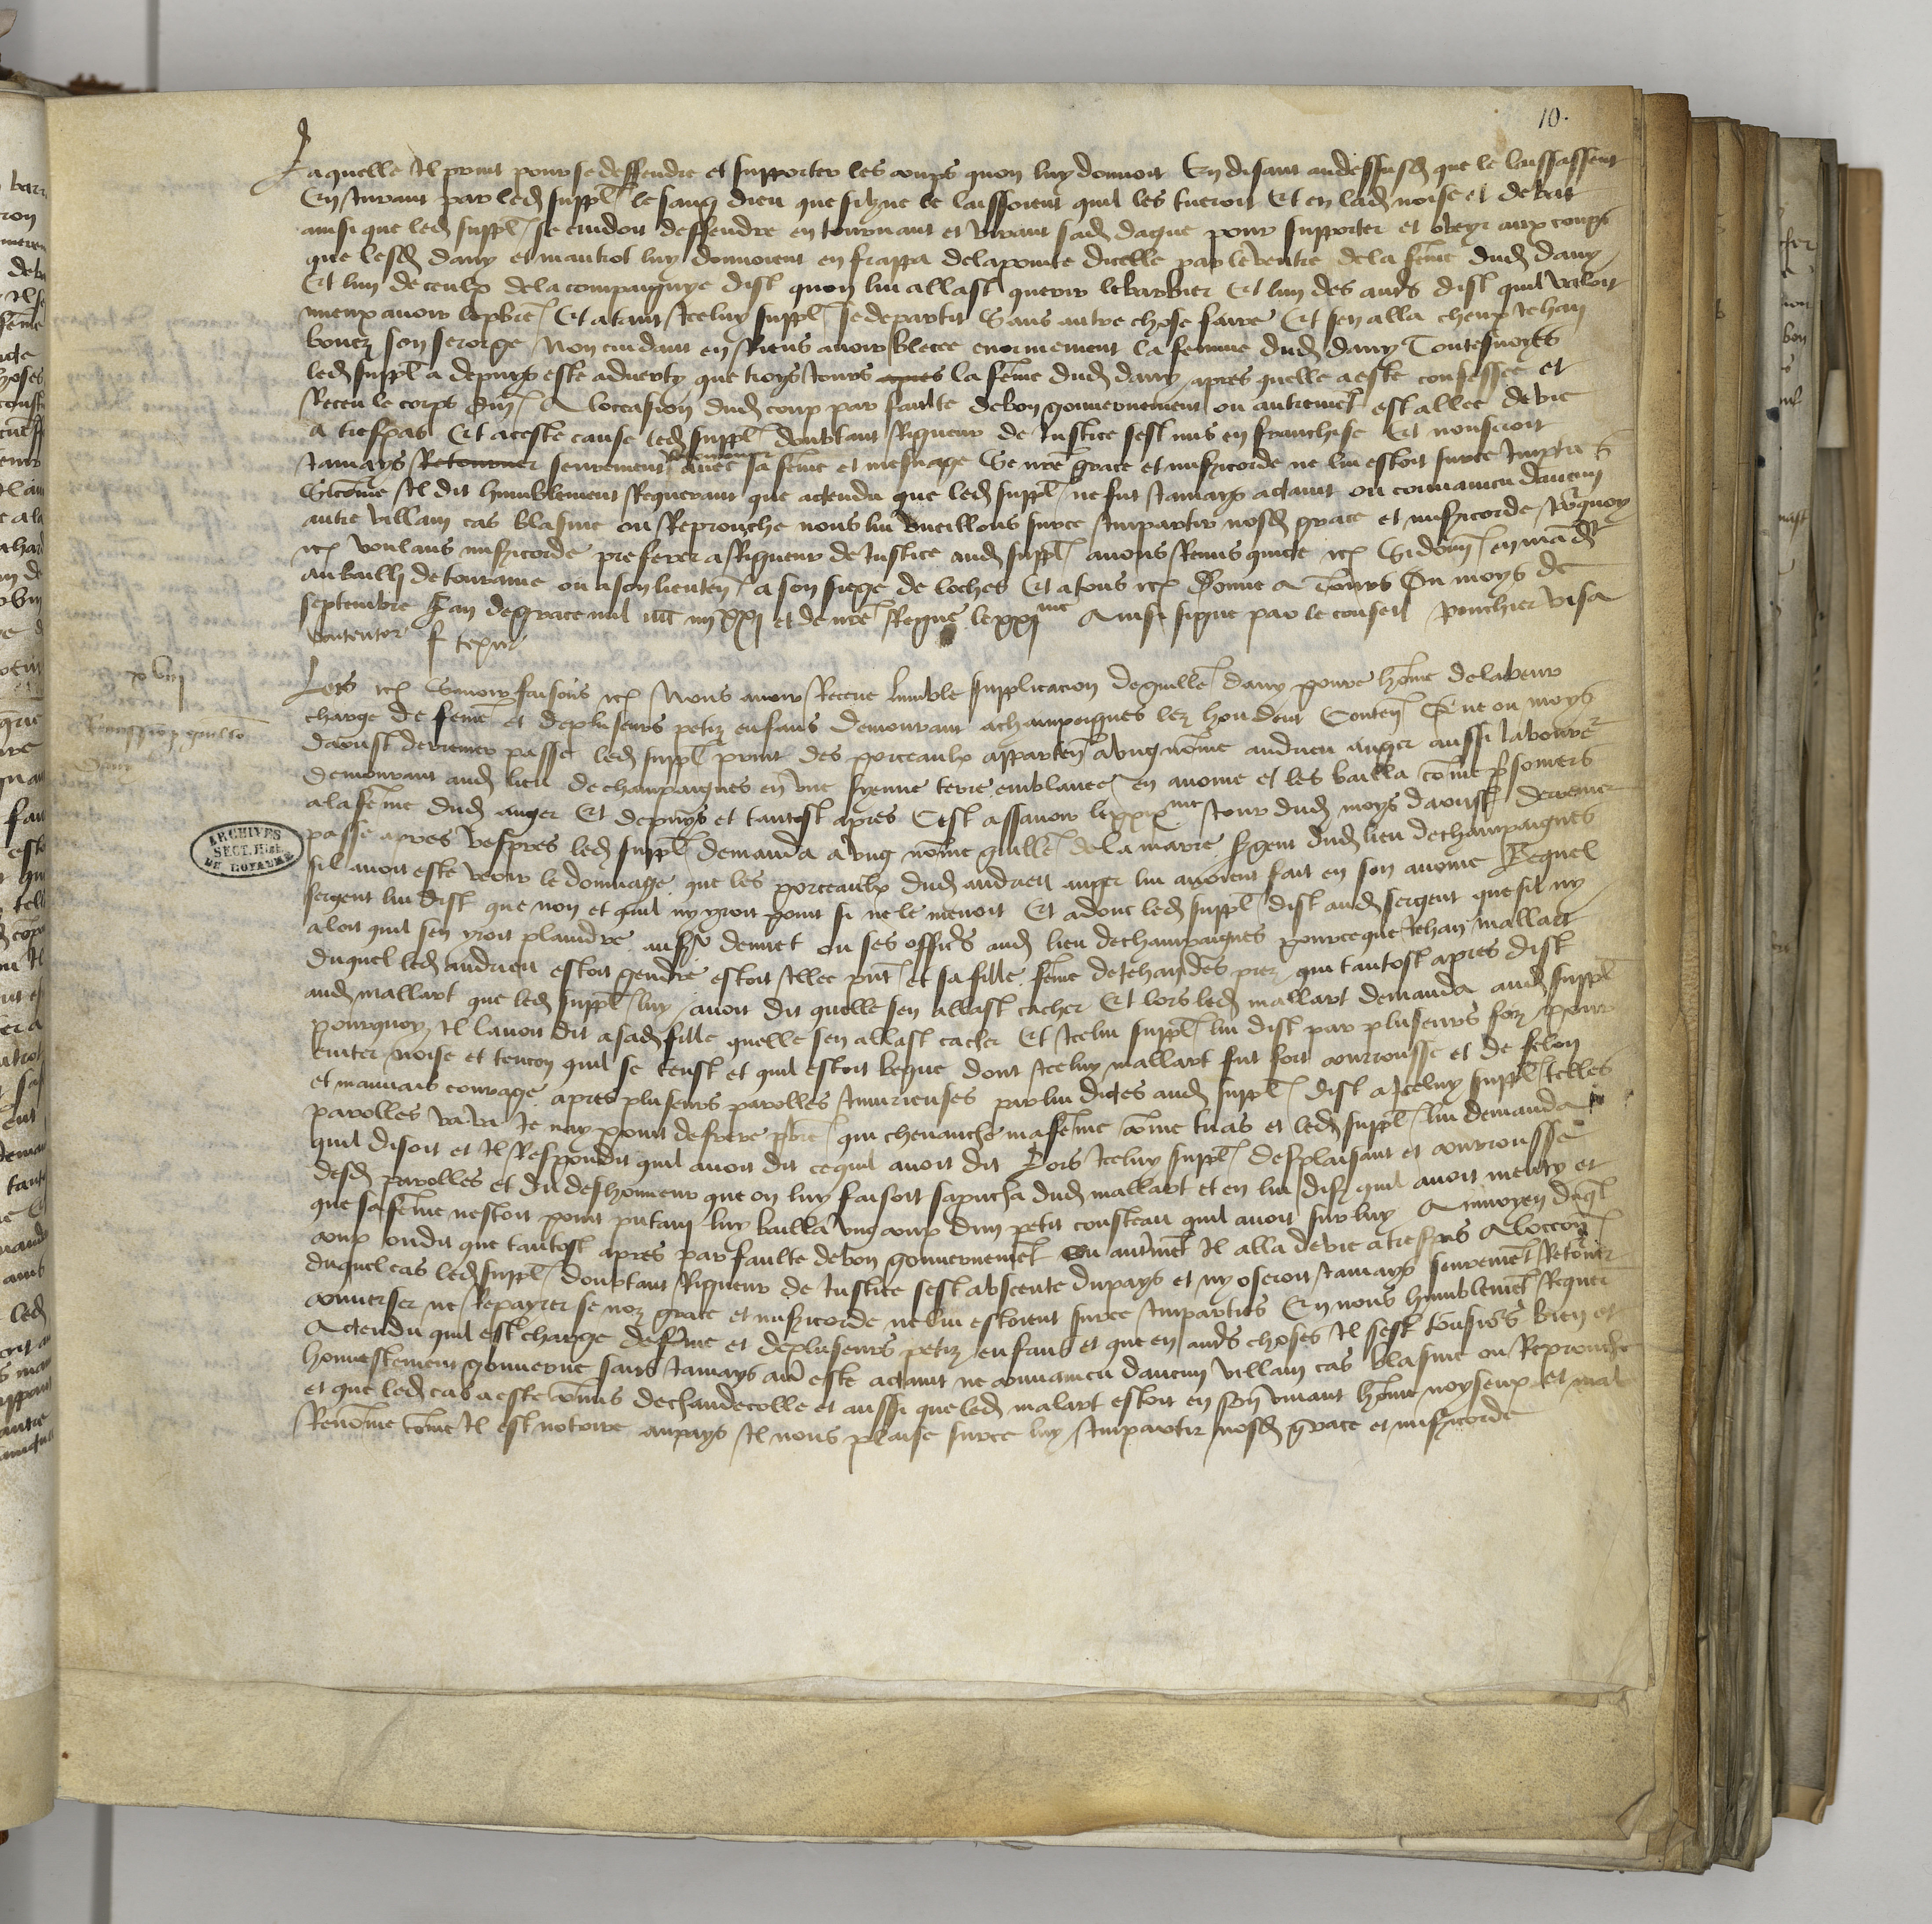 10.
Laquelle il print pour se deffendre et supporter les coups quon luy donnoit En disant ausdessusd que le laissassent
En jurant par led suppl le sang dieu que silz ne le laissoient quil les tueroit Et en lad noise et debat
ainsi que led suppl se cuidoit deffendre en tournant et virant sad dague pour supporter et obeyr aux coups
que lesd dany et mautrot luy donnoient en frappa de la pointe dicelle par le ventre de la feme dud dany
Et lun de ceulx de la compaignye dist quon lui allast querir le barbier Et lun des auts dist quil valoit
mieux avoir le pbre Et atant icelluy suppl se departit Sans autre chose faire Et sen alla cheux Jehan
bouez son serorge Non cuidant en Riens avoir blecee enormement la femme dud dany Toutesvoyes
led suppl a depuys este adverty que troys jours apres la feme dud dany apres quelle a este confessee et
Receu le corps Dni A loccasion dud coup par faulte de bon gouvernement ou autremet est allee de vie
a trespas Et a ceste cause led suppl doubtant Rigueur de Justice sest mis en franchise Et noseroit
jamays Retourner seurement Retourner avec sa feme et mesnage Se nre grace et misericorde ne lui estoit surce impartie
Sicome il dit humblement Requerant que actendu que led suppl ne fut jamays actaint ou convaincu daucun
autre villain cas blasme ou Reprouche nous lui vueillons surce impartir nosd grace et misericorde Pourquoy
etc voulans misericorde preferer a Rigueur de Justice aud suppl avons Remis quicte etc Si donn en mandt
au bailli de touraine ou a son lieuten a son siege de loches Et a tous etc Donne a Tours Ou moys de
septembre Lan de grace mil iiiic iiiixx xi et de nre Regne le xxjme Ainsi signe par le conseil ponchier visa
contentor f texier
xviij
Remission guille
dany
Loys etc Savoir faisons etc Nous avoir Receue lumble supplicacion de guille dany povre home de labeur
charge de feme et de pluseurs petiz enfans demourant a champaignes lez houdent Conten Que ou moys
daoust dernierer passe led suppl print des porceaulx apparten a ung nome andrieu anger aussi laboure
demourant aud lieu de champaignes en une syenne terre emblavee en avoine et les bailla come
a la feme dud anger Et depuys et tantost apres Cest assavoir le xxixme jour dud moys daoust dernier
passe apres vespres led suppl demanda a ung nome guille de la mare sergent dud lieu de champaignes
sil avoit este veoir le dommage que les porceaulx dud andrieu anger lui avoient fait en son avoine Lequel
sergent lui dist que non et quil ny yroit point si ne le menoit Et adonc led suppl dist aud sergent que sil ny
aloit quil sen yroit plaindre au ou ses offics aud lieu de champaignes pource que Jehan mallart
duquel led andrieu estoit gendre estoit illec pnt et sa fille feme de Jehan des prez qui tantost apres dist
aud mallart que led suppl luy avoit dit quelle sen allast cacher Et lors led mallart demanda aud suppl
pourquoy il lavoit dit a sad fille quelle sen allast cacher Et icelui suppl lui dist par pluseurs foiz pour
eviter noise et tencon quil se teust et quil estoit begue dont icelluy mallart fut fort courrousse et de felon
et mauvais courage apres pluseurs parolles injurieuses par lui dictes aud suppl dist a icelluy suppl telles
parolles va va Je nay point de frere pbre qui chevauche ma feme come tu as et led suppl lui demanda
quil disoit et il Respondit quil avoit dit ce quil avoit dit Lors icelluy suppl desplaisant et courrousse
desd parolles et du deshonneur que on luy faisoit saproucha dud mallart et en lui dist quil avoit menty et
que sa feme nestoit point putain luy bailla ung coup dun petit cousteau quil avoit sur luy A moyen duql
coup on dit que tantost apres par faulte de bon gouvernemet ou autremet il alla de vie a trespas A loccon
duquel cas led suppl doubtant Rigueur de Justice sest absente du pays et ny oseroit jamays seuremet Retourner
converser ne Repayrer se noz grace et misericorde ne lui estoient surce imparties En nous humblemet Requer
Actendu quil est charge de feme et de pluseurs petiz enfans et que en auts choses il sest tousiours bien et
honnestement gouverne sans jamays avoir este actaint ne convaincu daucun villain cas blasme ou Reprouche
et que led cas a este comis de chaudecolle et aussi que led malart estoit en son vivant home noyseux et mal
Renome come il est notoire au pays il nous plaise surce luy impartir nosd grace et misericorde
ARCHIVES
SECT. HIST.
DU ROYAUME